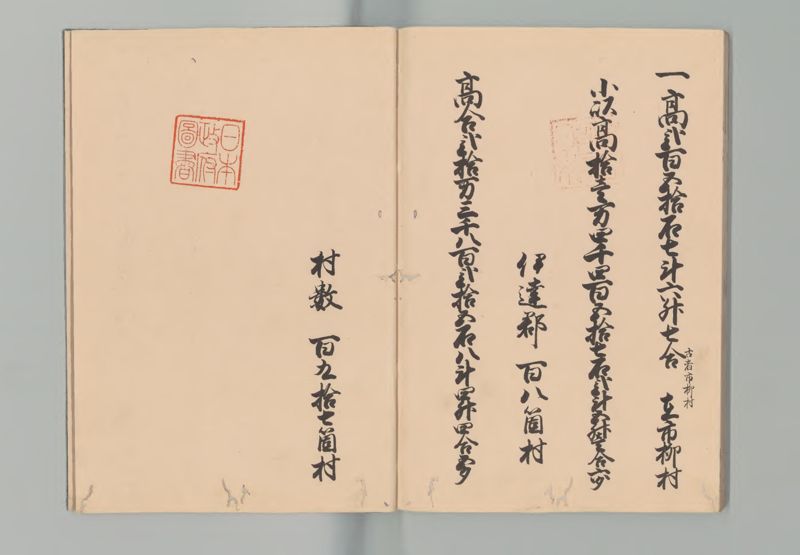 一高弐百五拾石七斗六升七合
古者市柳村
立市柳村
小以高拾壱万四千四百五拾七石弐斗五升
伊達郡 百八箇村
高合弐拾万三千八百弐拾五石八斗四升四合五勺
村数 百九拾七箇村
日本
政府
圖書